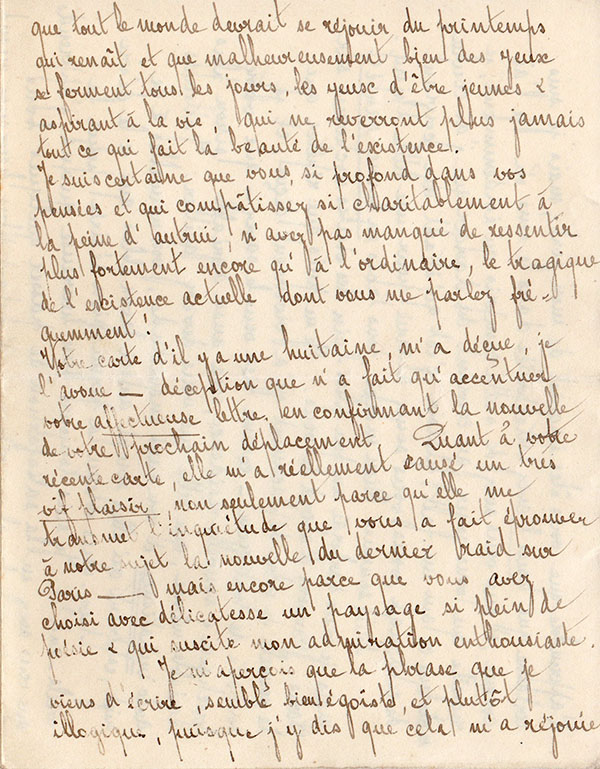 que tout le monde devrait se réjouir du printemps
qui renaît et que malheureusement bien des yeux
se ferment tous les jours, les yeux d'être jeunes &
aspirant à la vie, qui ne reverront plus jamais
tout ce qui fait la beauté de l'existence.
Je suis certaine que vous, si profond dans vos
pensées et qui compâtissez si charitablement à
la peine d'autrui, n'avez pas manqué de ressentir
plus fortement encore qu'à l'ordinaire, le tragique
de l'existence actuelle dont vous me parlez fré-
quemment !
Votre carte d'il y a une huitaine, m'a déçue, je
l'avoue — déception que n'a fait qu'accentuer
votre affectueuse lettre, en confirmant la nouvelle
de votre prochain déplacement. Quant à votre
récente carte, elle m'a réellement causé un très
vif plaisir, non seulement parce qu'elle me
transmet l'inquiétude que vous a fait éprouver
à notre sujet la nouvelle du dernier raid sur
Paris — mais encore parce que vous avez
choisi avec délicatesse un paysage si plein de
poésie & qui suscite mon admiration enthousiaste.
Je m'aperçois que la phrase que je
viens d'écrire, semble bien égoïste, et plutôt
illogique, puisque j'y dis que cela m'a réjouie